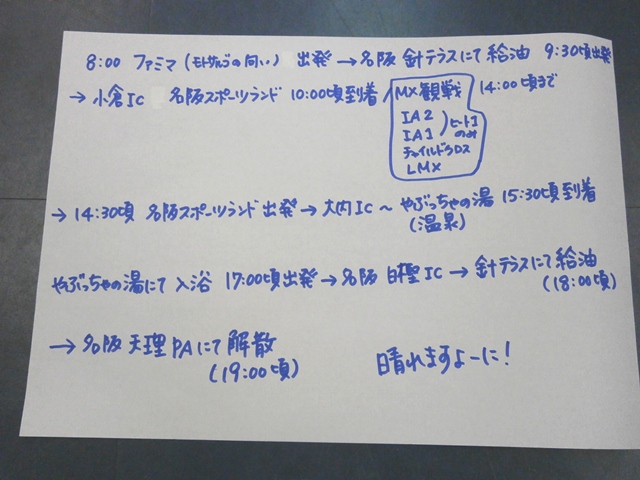 8:00 ファミマ(モトサルゴの向い) 出発→名阪 針テラスにて給油 9:30頃出発
→小倉IC 名阪スポーツランド 10:00頃到着 MX観戦 14:00頃まで
IA2
IA1 ヒート1のみ
チャイルドクロス
LMX
→14:30頃 名阪スポーツランド出発→大内IC~やぶっちゃの湯 15:30頃到着
(温泉)
やぶっちゃの湯にて入浴 17:00頃出発→名阪 白樫IC→針テラスにて給油
(18:00頃)
→名阪 天理PAにて解散
(19:00頃)
晴れますよーに!